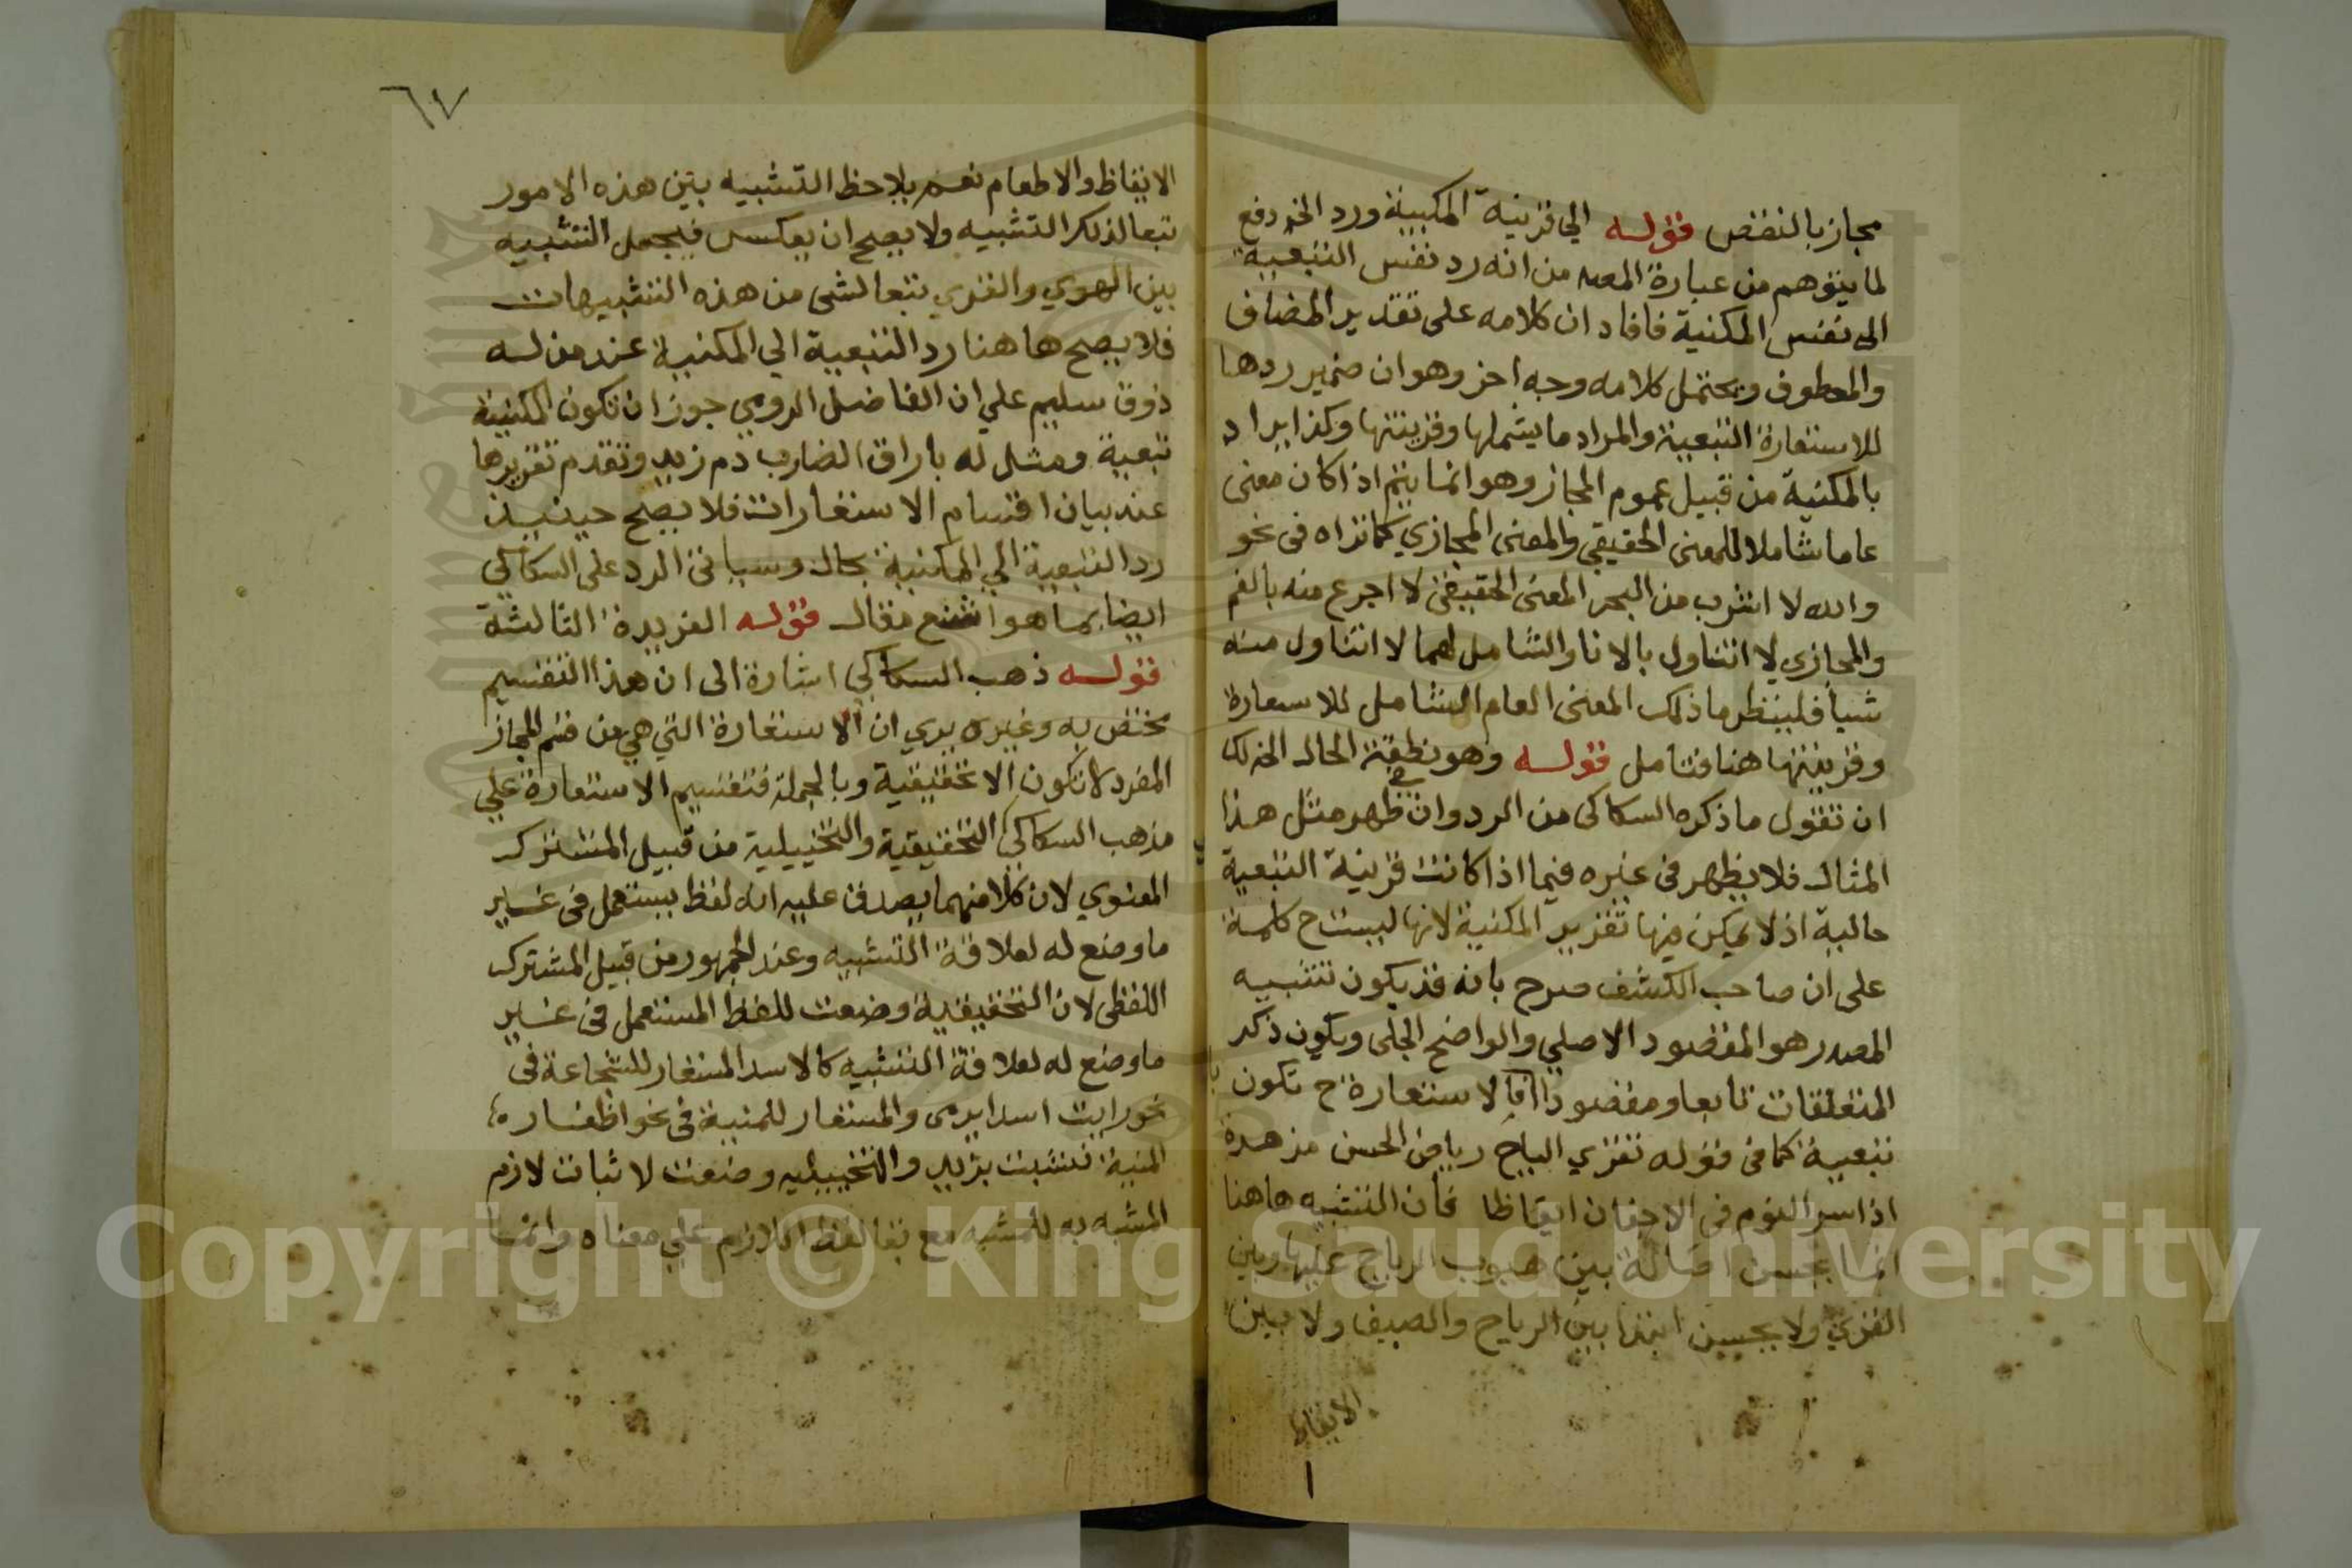 مجاز بالنقض قوله الي قرينة المكنية ورد الخ دفع
لما يتوهم من عبارة المصـ من انه رد نفس التبعية
الى نفس المكنية فافاد ان كلامه على تقدير المضاف
والمعطوف ويحتمل كلامه وجه اخر وهو ان ضمير ردها
للاستعارة التبعية والمراد ما يشملها وقرينتها وكذا يراد
بالمكنية من قبيل عموم المجاز وهو انما يتم اذا كان معنى
عاما شاملا للمعنى الحقيقي والمعنى المجازي كما تراه في نحو
والله لا اشرب من البحر المعنى الحقيقي لا اجرع منه بالفم
والمجازي لا اتناول بالانا والشامل لهما لا اتناول منه
شيأ فلينظر ما ذلك المعنى العام الشامل للاستعارة
وقرينتها هنا فتامل قوله وهو نطقت الحال الخ لك
ان تقول ما ذكره السكاكي من الرد وان ظهر في مثل هذا
المثال فلا يظهر في غيره فيما اذا كانت قرينة التبعية
حالية اذ لا يمكن فيها تقرير المكنية لانها ليست ح كلمة
على ان صاحب الكشف صرح بانه قد يكون تشبيه
المصدر هو المقصود الاصلي والواضح الجلى ويكون ذكر
المتعلقات تابعا ومقصودا فالاستعارة ح تكون
تبعية كما في قوله تقري الرياح رياض الحسن مزهرة
اذا سر النوم في الاجفان ايقاظا فان التشبيه هاهنا
انما يحسن اصالة بين هبوب الرياح عليها وبين
القري ولا يحسن ابتدا بين الرياح والضيف ولا بين
الايقاظ
٦٧
الايقاظ والاطعام نعم يلاحظ التشبيه بين هذه الامور
تبعا لذلك التشبيه ولا يصح ان يعكس فيجعل التشبيه
بين الهوي والقري تبعا لشى من هذه التشبيهات
فلا يصح هاهنا رد التبعية الي المكنية عند من له
ذوق سليم علي ان الفاضل الرومي جوز ان تكون المكنية
تبعية ومثل له باراق الضارب دم زيد وتقدم تقريرها
عند بيان اقسام الاستعارات فلا يصح حينيذ
رد التبعية الي المكنية بحال وسياتي الرد على السكاكي
ايضا بما هو اشنع مقال قوله الفريدة الثالثة
قوله ذهب السكاكي اشارة الى ان هذا التقسيم
مختص به وغيره يري ان الاستعارة التي هي من قسم المجاز
المفرد لا تكون الا تحقيقية وبالجملة فتقسيم الاستعارة علي
مذهب السكاكي التحقيقية والتخييلية من قبيل المشترك
المعنوي لان كلا منهما يصدق عليه انه لفظ يستعمل في غير
ما وضع له لعلاقة التشبيه وعند الجمهور من قبيل المشترك
اللفظى لان التحقيقية وضعت للفظ المستعمل في غير
ما وضع له لعلاقة التشبيه كالاسد المستعار للشجاعة في
نحو رايت اسدا يرمى والمستعار للمنية في نحو اظفاره
المنية نشبت بزيد والتخييليه وضعت لاثبات لازم
المشبه به للمشبه مع بقا لفظ اللازم علي معناه وانما
Copyright © King Saud University